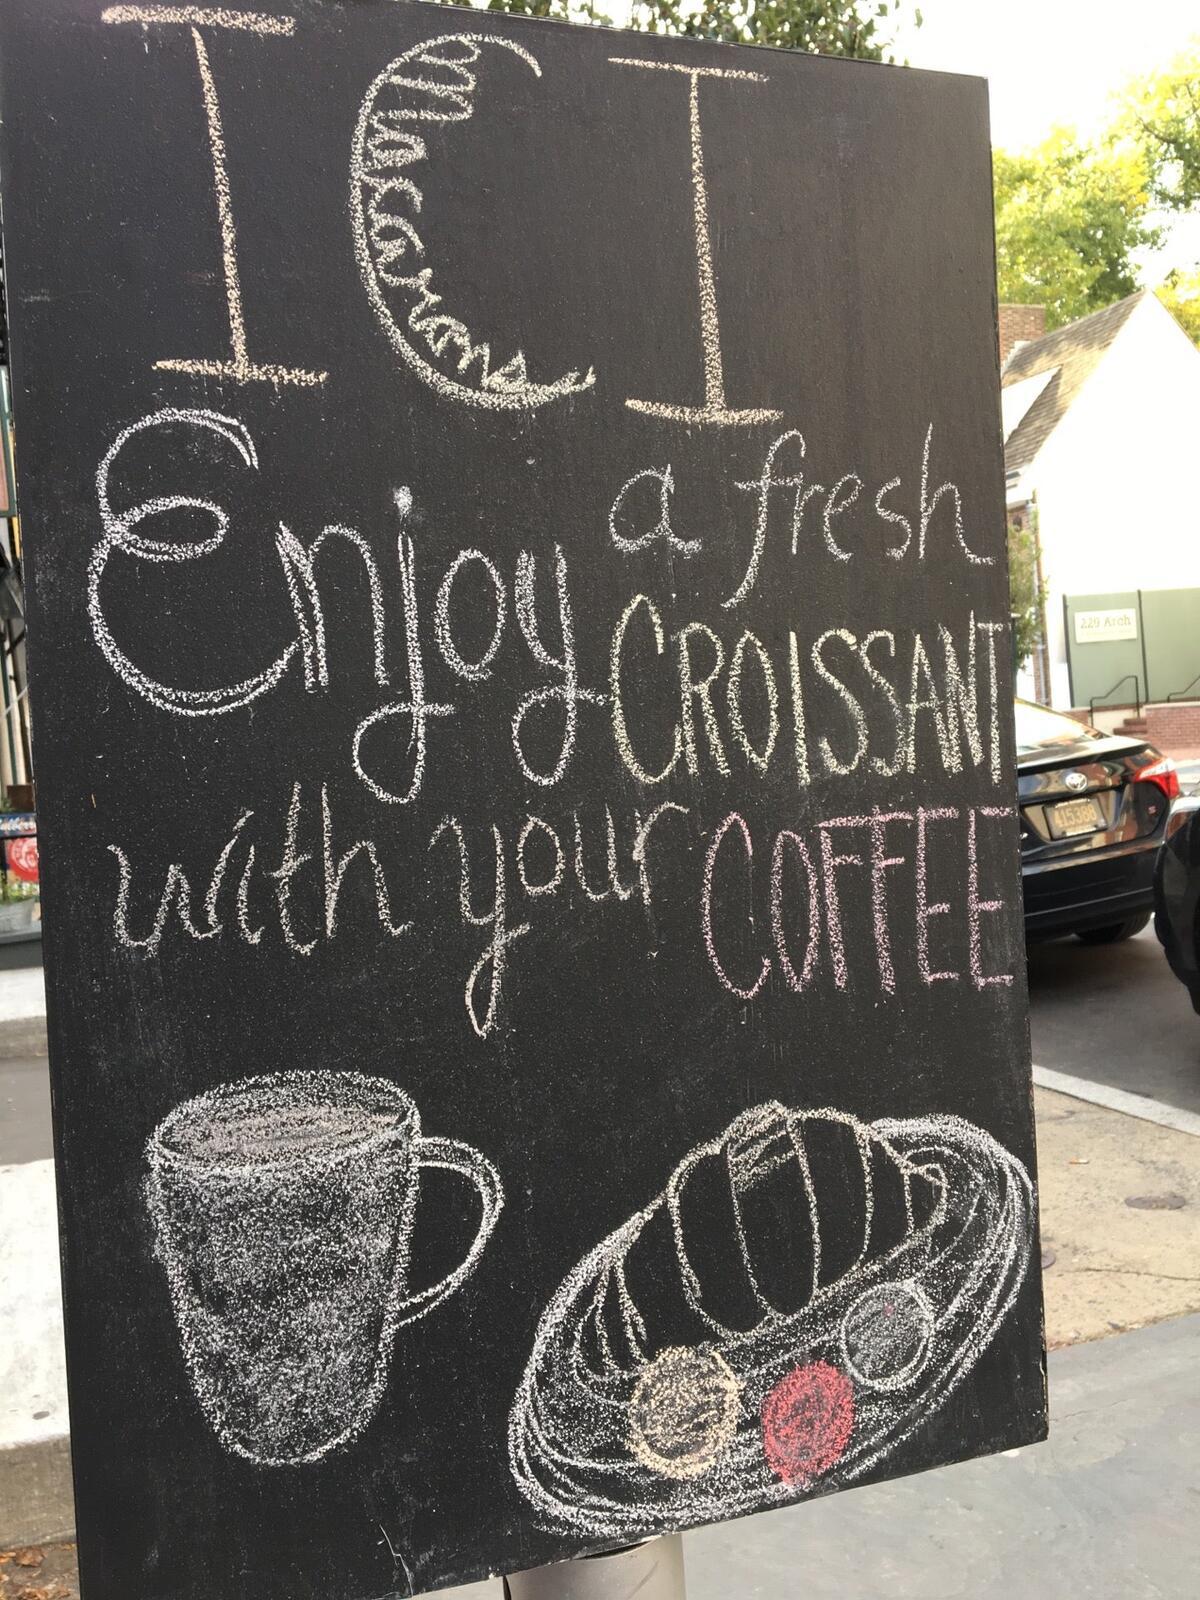 ICI
Macarons
Enjoy a fresh
CROISSANT
with your COFFEE
229 Arch